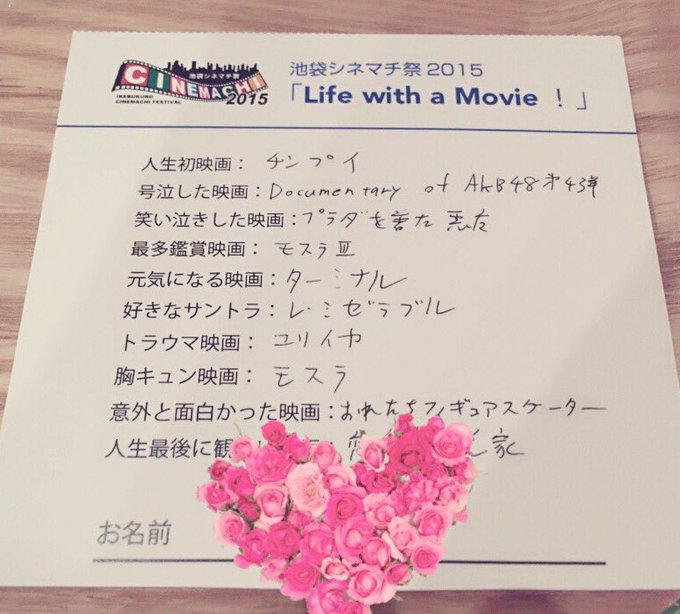 池袋シネマチ祭
CINEMACHI
2015
IKEBUKURO
CINEMACHI FESTIVAL
池袋シネマチ祭 2015
「Life with a Movie ! 」
人生初映画： チンプイ
号泣した映画：Documentary of AKB48 第43弾
笑い泣きした映画：プラダを着た悪友
最多鑑賞映画： モスラⅢ
元気になる映画：ターミナル
好きなサントラ：レ・ミゼラブル
トラウマ映画： ユリイカ
胸キュン映画： モスラ
意外と面白かった映画：おれたちフィギュアスケーター
人生最後に観 家
お名前